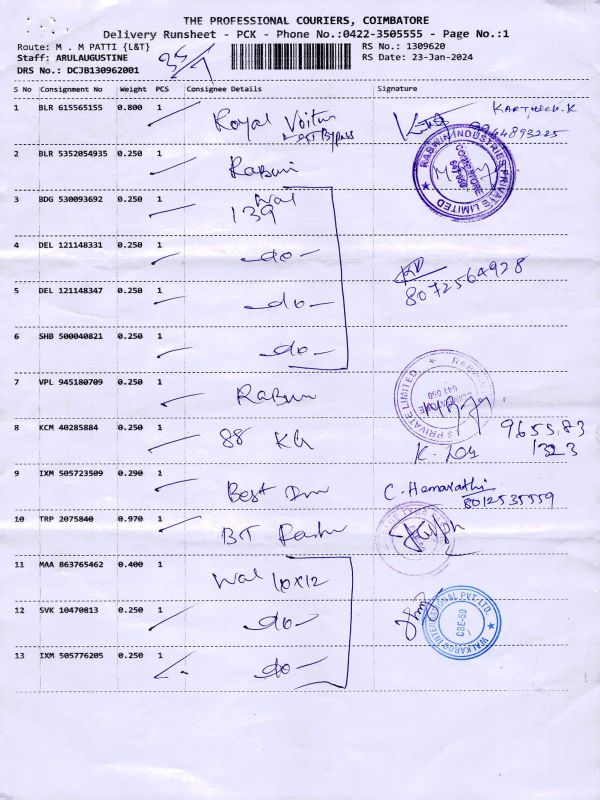 THE PROFESSIONAL COURIERS, COIMBATORE
Delivery Runsheet - PCK - Phone No.:0422-3505555 - Page No.:1
Route: M . M PATTI {L&T} RS No.: 1309620
Staff: ARULAUGUSTINE RS Date: 23-Jan-2024
DRS No.: DCJB130962001
S No Consignment No Weight PCS Consignee Details Signature
1 BLR 615565155 0.800 1 Royal KARTHICK.K
Bypass
2 BLR 5352054935 0.250 1
RABWIN INDUSTRIES PRIVATE LIMITED
COIMBATORE
3 BDG 530093692 0.250 1 Wal
139
4 DEL 121148331 0.250 1 -do-
8072564928
5 DEL 121148347 0.250 1 -do-
6 SHB 500040821 0.250 1 -do-
7 VPL 945180709 0.250 1
PRIVATE LIMITED
641 050
8 KCM 40285884 0.250 1 88 KG
9 IXM 505723509 0.290 1 Best C. Hemavathi
8012535559
10 TRP 2075840 0.970 1 BT
11 MAA 863765462 0.400 1 Wal 10x12
12 SVK 10470813 0.250 1 -do-
WALKAROO INTERNATIONAL PVT. LTD.
CBE-50
13 IXM 505776205 0.250 1 -do-